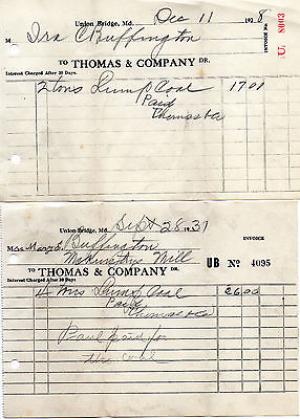 Union Bridge, Md. Dec 11 1928
M Ira C Buffington
TO THOMAS & COMPANY DR.
Interest Charged After 30 Days.
2 tons Lump Coal 17 00
Paid
Thomas & Co
INVOICE
Union Bridge, Md. Sept 28 - 37
Mrs Mary E. Buffington
Mill
UB No 4095
TO THOMAS & COMPANY DR.
Interest Charged After 30 Days.
4 tons Lump Coal 26 00
Paid
Thomas & Co
Paul paid for
the coal